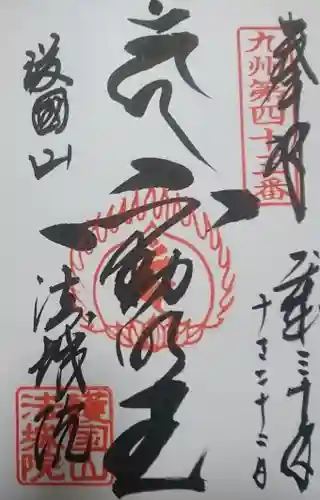 奉拝
九州第四十三番
平成三十年
十月二十二日
不動明王
護國山
法城院
護国山
法城院